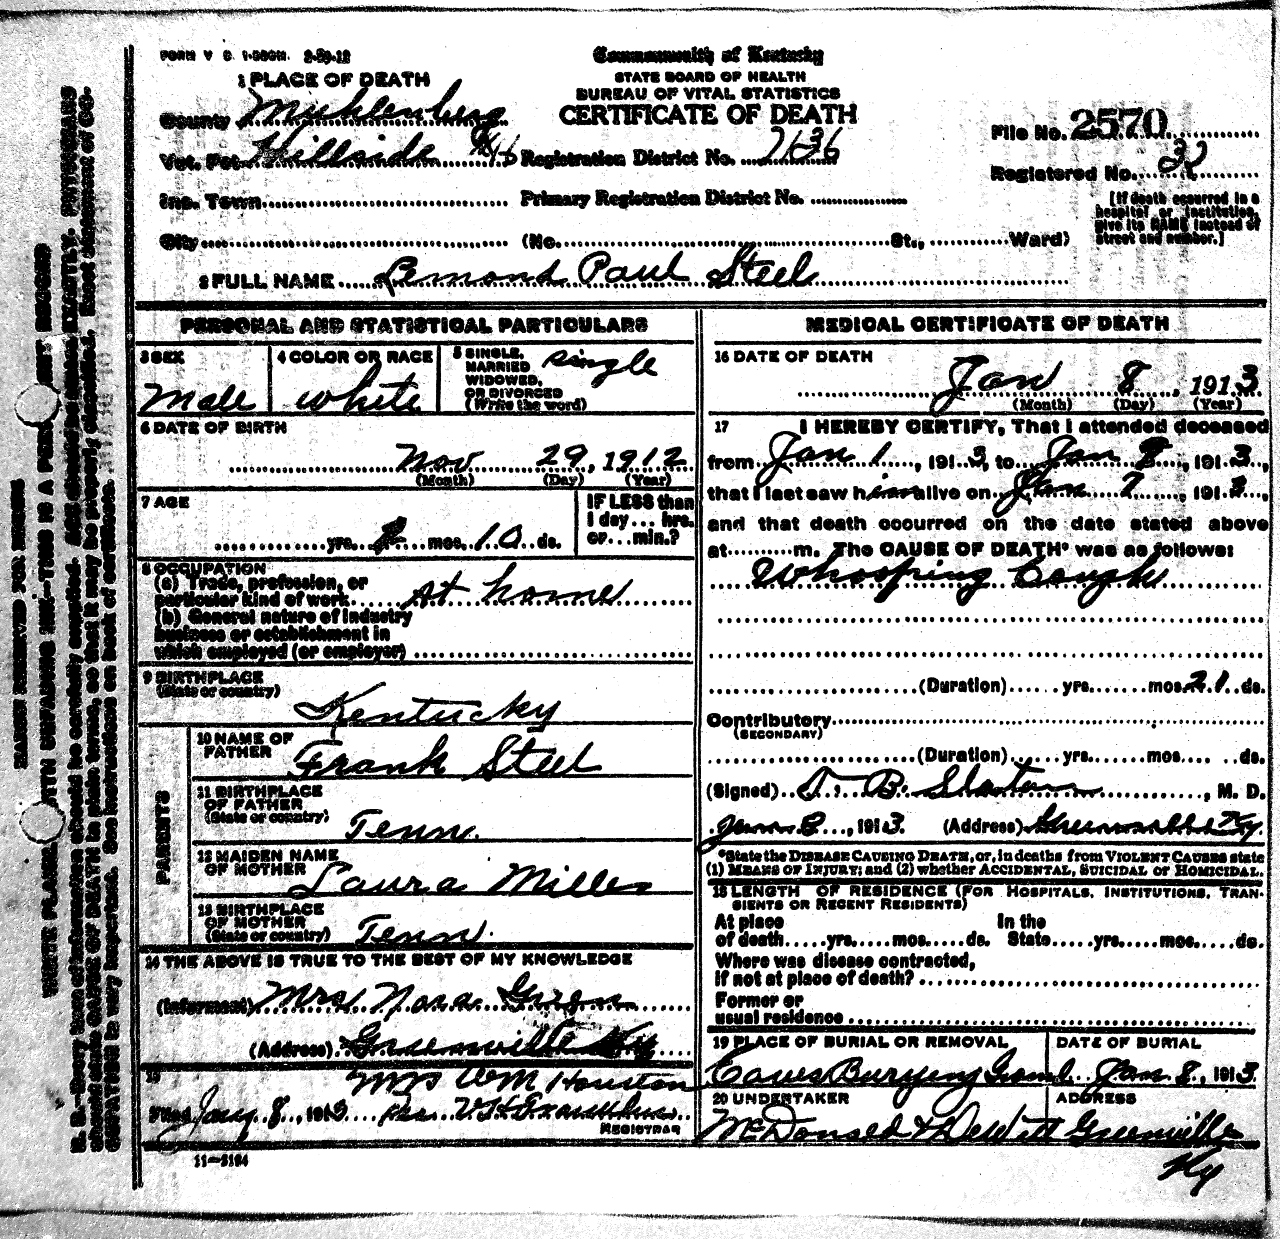 FORM V. S. 1-50M. 2-29-12
Commonwealth of Kentucky
STATE BOARD OF HEALTH
BUREAU OF VITAL STATISTICS
CERTIFICATE OF DEATH
1 PLACE OF DEATH
County Muhlenberg
Vot. Pct. Hillside Registration District No. 7636
File No. 2570
Registered No. 32
Inc. Town Primary Registration District No.
City (No. St., Ward)
[If death occurred in a hospital or institution, give its NAME instead of street and number.]
2 FULL NAME Lemond Paul Steel
PERSONAL AND STATISTICAL PARTICULARS
3 SEX Male
4 COLOR OR RACE white
5 SINGLE, MARRIED WIDOWED, OR DIVORCED (Write the word) single
6 DATE OF BIRTH
Nov 29, 1912
(Month) (Day) (Year)
7 AGE
yrs. mos. 10 ds.
IF LESS than 1 day... hrs. or... min.?
8 OCCUPATION
(a) Trade, profession, or particular kind of work. At home
(b) General nature of industry business or establishment in which employed (or employer)
9 BIRTHPLACE
(State or country)
Kentucky
PARENTS
10 NAME OF FATHER Frank Steel
11 BIRTHPLACE OF FATHER (State or country) Tenn.
12 MAIDEN NAME OF MOTHER Laura Miller
13 BIRTHPLACE OF MOTHER (State or country) Tenn.
14 THE ABOVE IS TRUE TO THE BEST OF MY KNOWLEDGE
(Informant) Mrs. Nora
(Address) Greenville Ky
15 Mrs Wm Houston
Filed Jany 8, 1913
REGISTRAR
11-3184
MEDICAL CERTIFICATE OF DEATH
16 DATE OF DEATH
Jan 8, 1913
(Month) (Day) (Year)
17 I HEREBY CERTIFY, That I attended deceased
from Jan 1, 1913, to Jan 8, 1913,
that I last saw him alive on Jan 7, 1913,
and that death occurred on the date stated above
at m. The CAUSE OF DEATH* was as follows:
Whooping Cough
(Duration) yrs. mos. 21 ds.
Contributory
(SECONDARY)
(Duration) yrs. mos. ds.
(Signed) T. B. Slaton, M. D.
Jan 8, 1913. (Address) Greenville Ky.
*State the DISEASE CAUSING DEATH, or, in deaths from VIOLENT CAUSES state
(1) MEANS OF INJURY; and (2) whether ACCIDENTAL, SUICIDAL or HOMICIDAL.
18 LENGTH OF RESIDENCE (FOR HOSPITALS, INSTITUTIONS, TRANSIENTS OR RECENT RESIDENTS)
At place of death yrs. mos. ds. In the State yrs. mos. ds.
Where was disease contracted, if not at place of death?
Former or usual residence
19 PLACE OF BURIAL OR REMOVAL DATE OF BURIAL
Eaves Burying Ground Jan 8, 1913
20 UNDERTAKER ADDRESS
McDonald & DeWitt Greenville
Ky
MARGIN RESERVED FOR BINDING
WRITE PLAINLY WITH UNFADING INK—THIS IS A PERMANENT RECORD
N. B.—Every item of information should be carefully supplied. AGE should be stated EXACTLY. PHYSICIANS
should state CAUSE OF DEATH in plain terms, so that it may be properly classified. Exact statement of OC-
CUPATION is very important. See instructions on back of certificate.